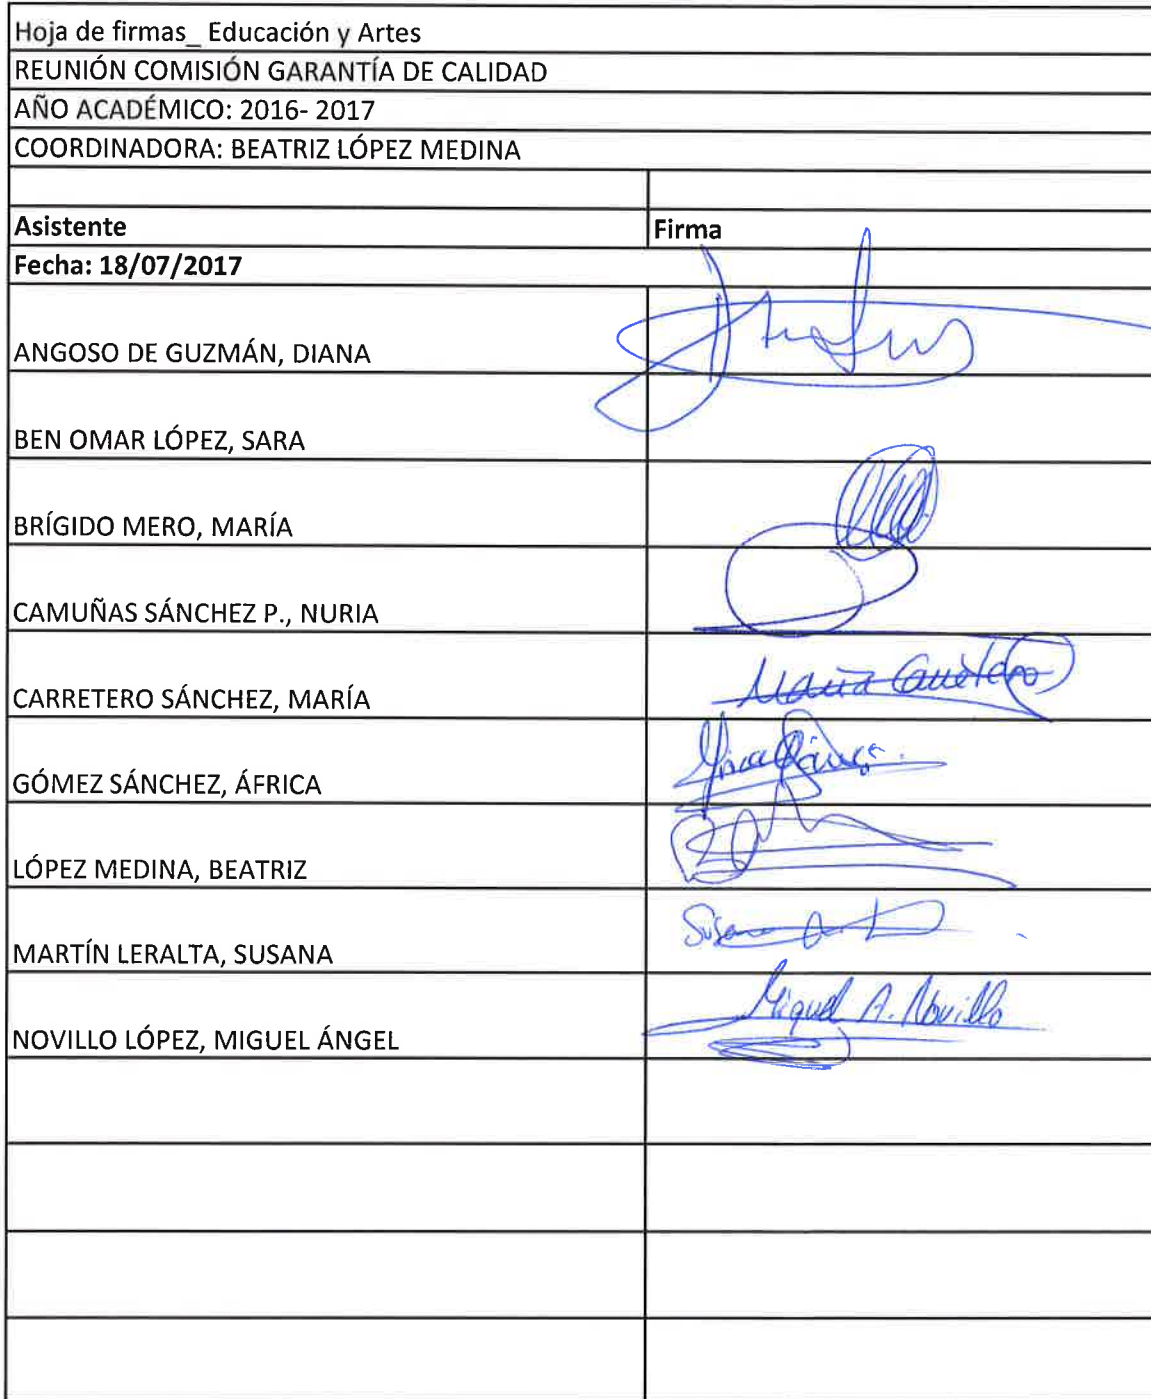 Hoja de firmas_ Educación y Artes
REUNIÓN COMISIÓN GARANTÍA DE CALIDAD
AÑO ACADÉMICO: 2016- 2017
COORDINADORA: BEATRIZ LÓPEZ MEDINA
Asistente Firma
Fecha: 18/07/2017
ANGOSO DE GUZMÁN, DIANA
BEN OMAR LÓPEZ, SARA
BRÍGIDO MERO, MARÍA
CAMUÑAS SÁNCHEZ P., NURIA
CARRETERO SÁNCHEZ, MARÍA María Carretero
GÓMEZ SÁNCHEZ, ÁFRICA
LÓPEZ MEDINA, BEATRIZ
MARTÍN LERALTA, SUSANA Susana
NOVILLO LÓPEZ, MIGUEL ÁNGEL Miguel A. Novillo